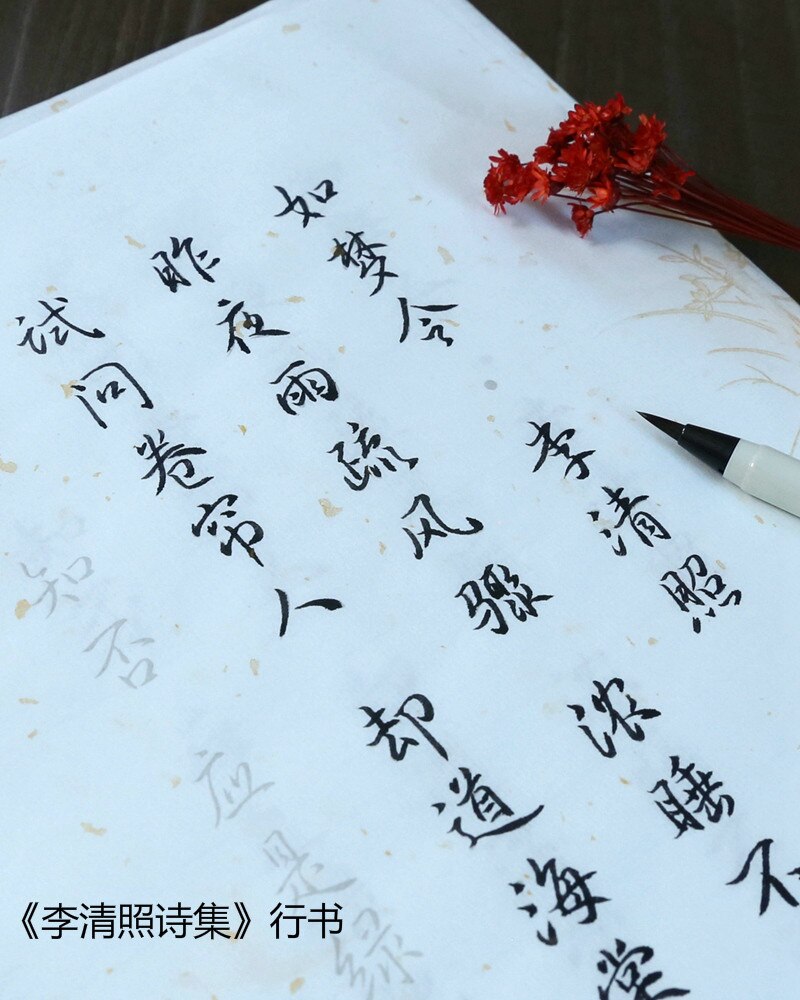 如梦令
李清照
昨夜雨疏风骤
浓睡不
试问卷帘人
却道海棠
知否
应是绿
《李清照诗集》行书